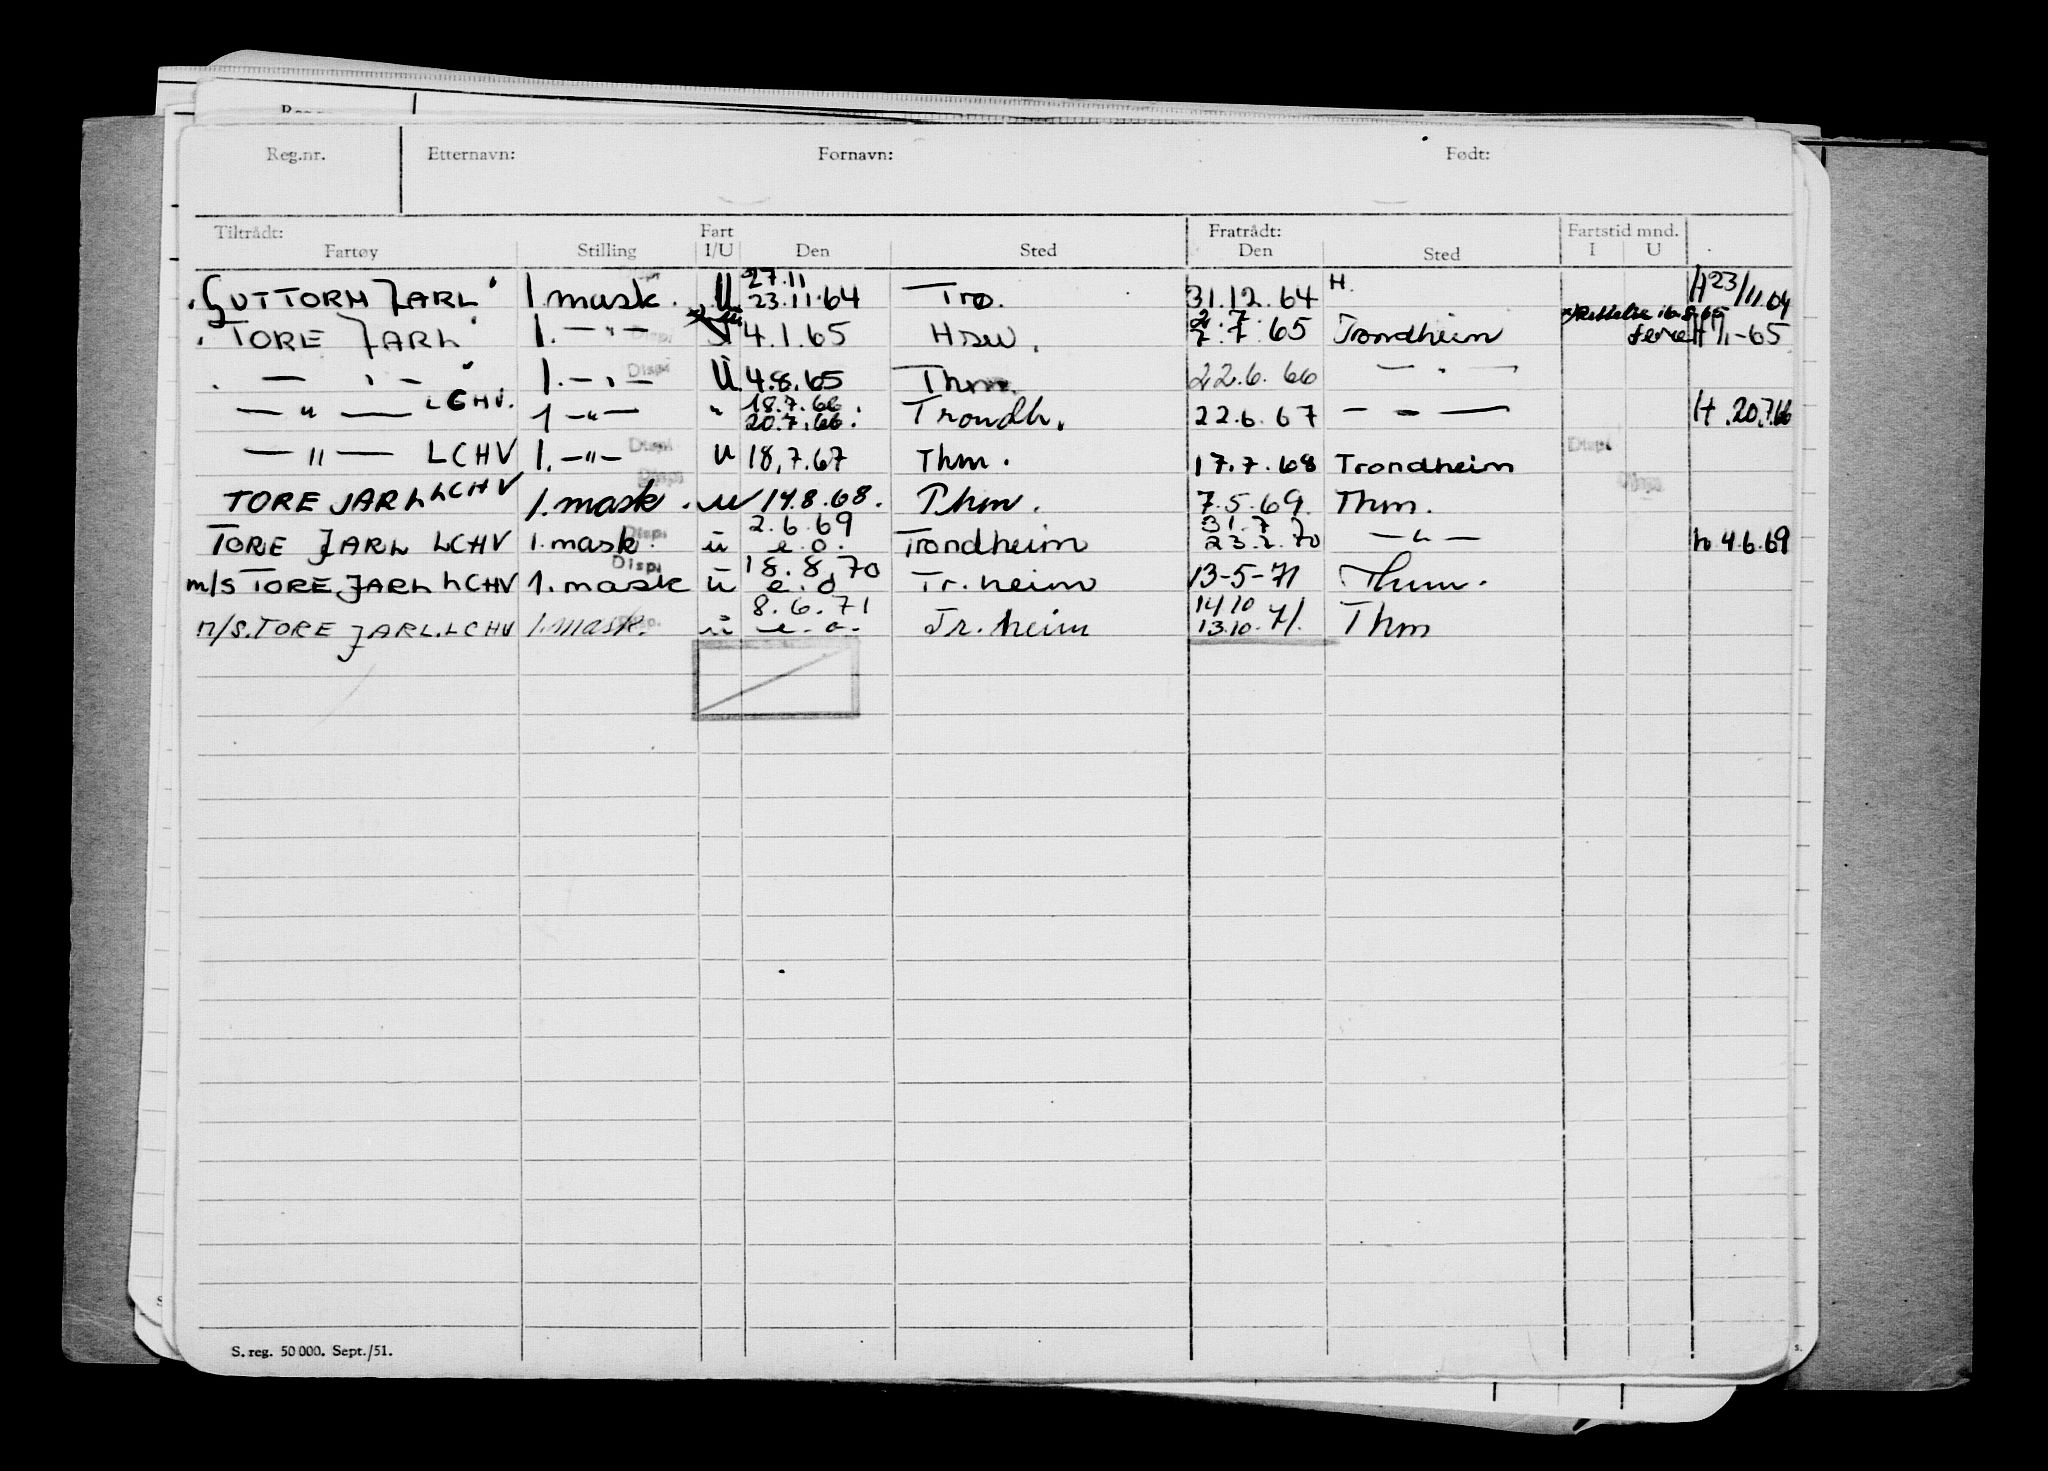 Reg.nr. Etternavn: Fornavn: Født:
Tiltrådt: Fart Fratrådt: Fartstid mnd.
Fartøy Stilling I/U Den Sted Den Sted I U
27.11 H.
"GUTTORM JARL" 1. mask. U 23.11.64 Tro. 31.12.64 H 23/11.64
2.7. Rettelse 16.8.65
"TORE JARL" 1. — " — Dispi 4.1.65 7.7.65 Trondheim H /1-65
— " — 1. — " — Dispi U 4.8.65 Thm. 22.6.66 — " —
18.7.66
— " — LCHV. 1 — " — " 20.7.66. Trondh. 22.6.67 — " — H. 20.7.66
— " — LCHV 1. — " — Dispi U 18.7.67 Thm. 17.7.68 Trondheim Dispi
TORE JARL LCHV 1. mask. Dispi u 14.8.68. Thm. 7.5.69. Thm. Dispi
2.6.69 31.7.70
TORE JARL LCHV 1. mask. Dispi u e.o. Trondheim 23.2.70 — " — h. 4.6.69
18.8.70
m/s TORE JARL LCHV 1. mask Dispi u e.o Tr.heim 13-5-71 Thm.
8.6.71 14/10
M/S. TORE JARL. LCHV 1. mask. Disp. u e.o. Tr.heim 13.10.71. Thm
S. reg. 50 000. Sept./51.